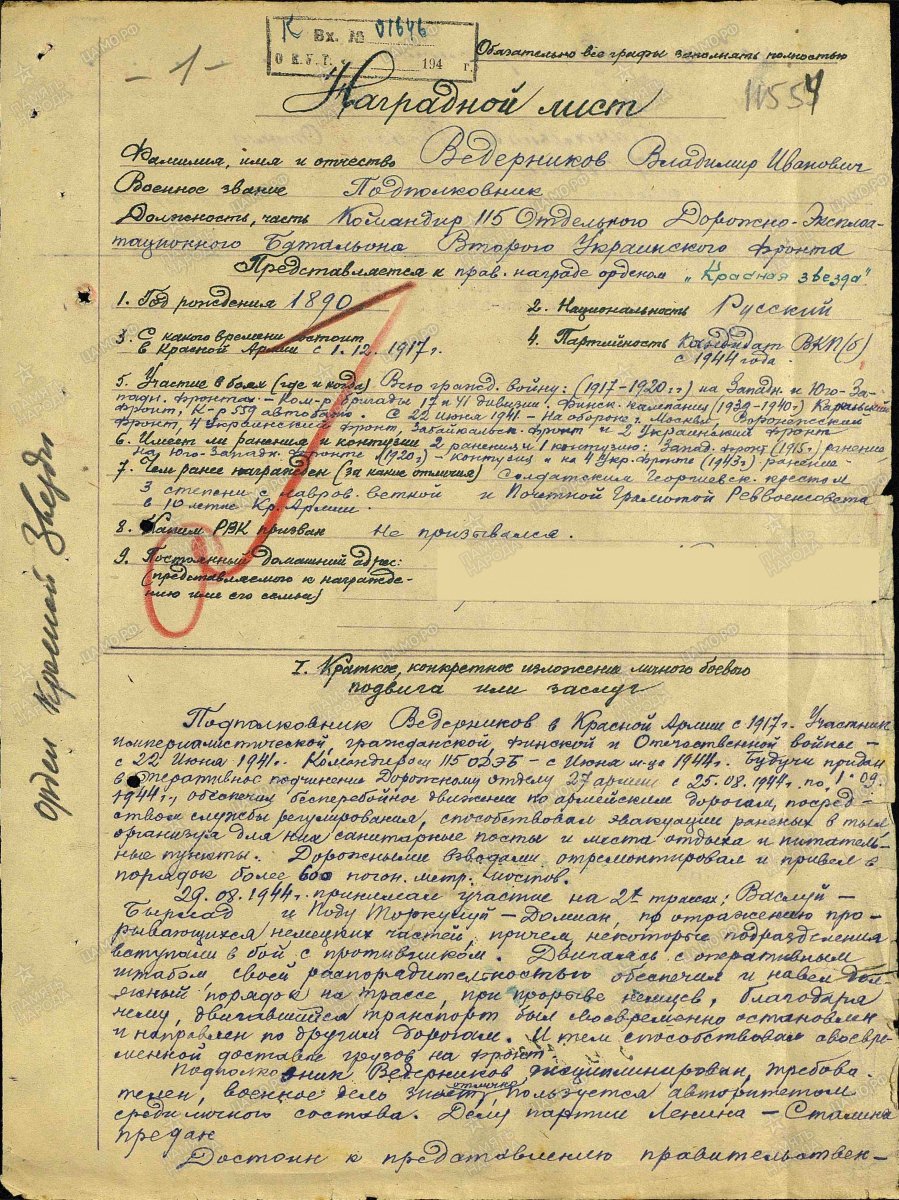 К Вх. № 01646
О К. У. Г. 194 г.
Обязательно все графы заполнять полностью
- 1 -
11554
Наградной лист
Фамилия, имя и отчество Ведерников Владимир Иванович
Военное звание Подполковник
Должность, часть Командир 115 Отдельного Дорожно-Эксплоа-
тационного Батальона Второго Украинского Фронта
Представляется к прав. награде орденом „Красная звезда"
1. Год рождения 1890
2. Национальность Русский
3. С какого времени состоит
в Красной Армии с 1.12.1917г.
4. Партийность Кандидат ВКП(б)
с 1944 года.
5. Участие в боях (где и когда) Всю гражд. войну: (1917-1920 гг) на Западн. и Юго-За-
падн. фронтах - Ком-р бригады 17 и 41 дивизии. Финск. кампания (1939-1940г) Карельский
фронт, К-р 559 автобат. С 22 июня 1941 - На обороне г. Москвы, Воронежский
фронт, 4 Украинский фронт, Забайкальск. фронт и 2 Украинский фронт
6. Имеет ли ранения и контузии 2 ранения и 1 контузию: Запад. фронт (1915г.) ранение
На Юго-Западн. фронте (1920г) - контузия и на 4 Укр. фронте (1943г) ранение
7. Чем ранее награжден (за какие отличия) Солдатским Георгиевск. крестом
3 степени с лавров. веткой и Почетной Грамотой Реввоенсовета
в 10 летие Кр. Армии.
8. Каким РВК призван Не призывался.
9. Постоянный домашний адрес:
(представляемого к награжде-
нию или его семьи)
орден Красной Звезды
I. Краткое, конкретное изложение личного боевого
подвига или заслуг
Подполковник Ведерников в Красной Армии с 1917г. Участник
империалистической, гражданской, финской и Отечественной войны -
с 22 июня 1941г. Командиром 115 ОДЭБ - с Июня м-ца 1944г. Будучи придан
в оперативное подчинение Дорожному отделу 27 армии с 25.08.1944г. по 1.09.
1944г., обеспечил бесперебойное движение по армейским дорогам, посред-
ством службы регулирования, способствовал эвакуации раненых в тыл,
организуя для них санитарные посты и места отдыха и питатель-
ные пункты. Дорожными взводами отремонтировал и привел в
порядок более 600 погон. метр. мостов.
29.08.1944г. принимал участие на 2х трассах: Васлуй -
Бырлад и Поду Торкулуй - Доман, по отражению про-
рывающихся немецких частей, причем некоторые подразделения
вступали в бой с противником. Двигаясь с оперативным
штабом, своей распорядительностью обеспечил и навел дол-
жный порядок на трассе, при прорыве немцев, благодаря
чему, двигавшийся транспорт был своевременно остановлен
и направлен по другим дорогам. И тем способствовал своевре-
менной доставке грузов на фронт.
Подполковник Ведерников дисциплинирован, требова-
телен, военное дело знает отлично, пользуется авторитетом
среди личного состава. Делу партии Ленина - Сталина
предан
Достоин к представлению правительствен-